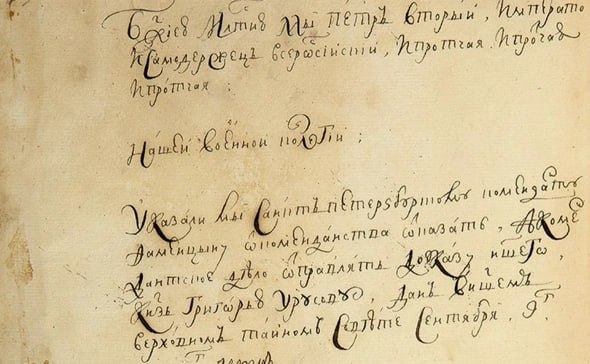 Бжїею млтїю мы петръ вторый, императо
и самодержецъ всеросїискїй, и протчая и протчая
и протчая:
нашей военной колегїи:
указали мы санктъ петерзбургскому коменданту
от комендантства отказать, а коме
дантское дѣло отправлять до указу ншего,
кнзь григорью урусову, данъ в нашемъ
верховномъ тайномъ совѣте сентября, 9г